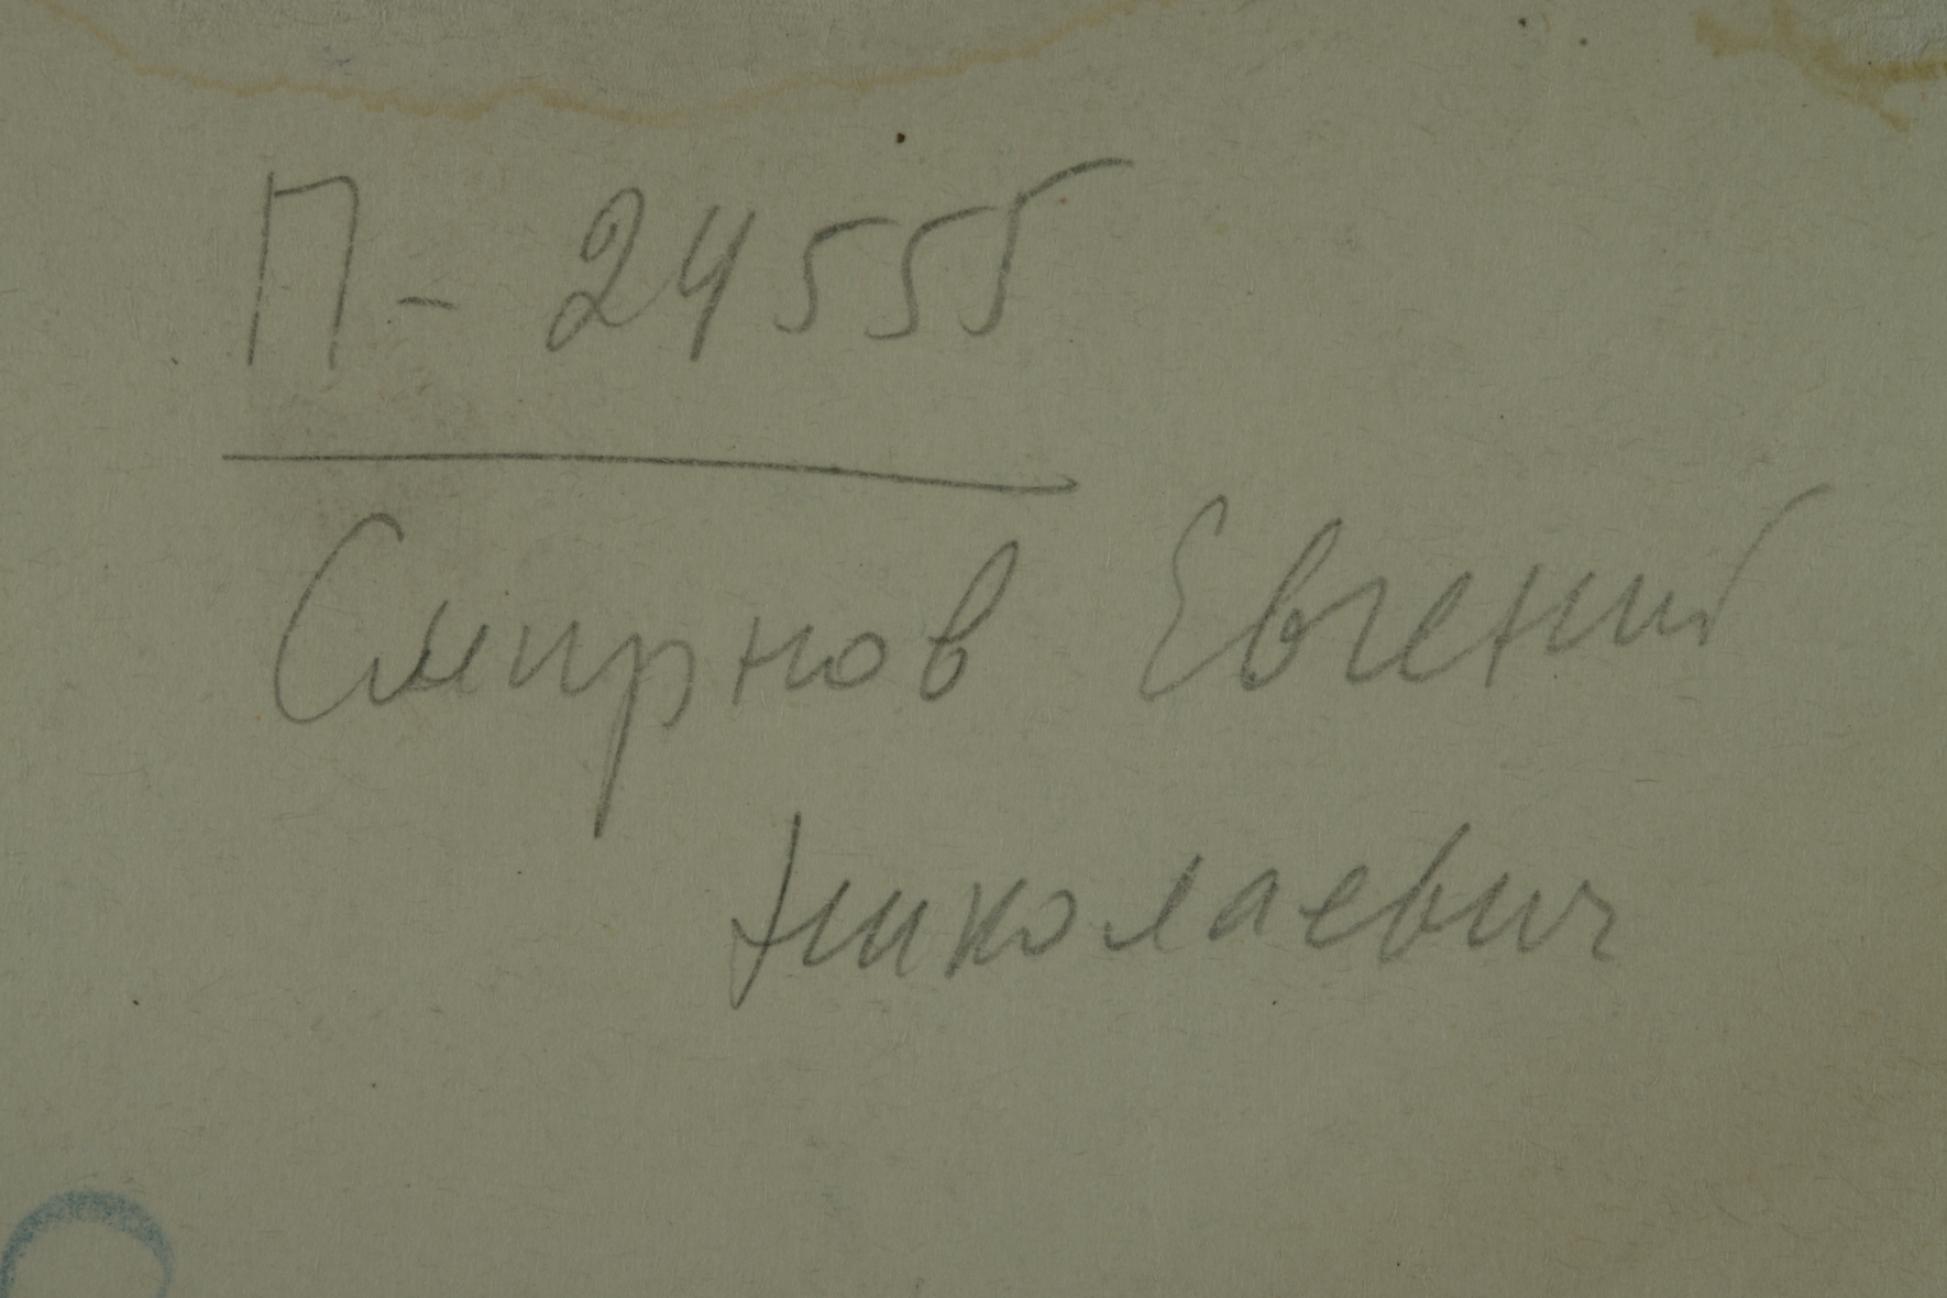 П - 24555
Смирнов Евгений
Николаевич